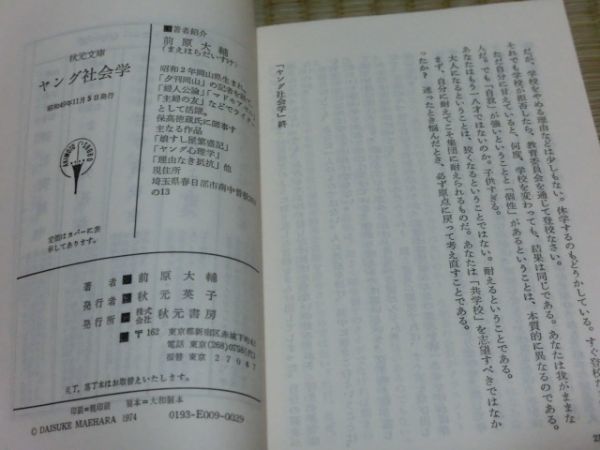 だが、学校をやめる理由などは少しもない。休学するのもどうかしている。すぐ登校な
それでも学校が拒否したら、教育委員会を通じて登校なさい。
ただ自分に甘えていると、何度、学校を変わっても、結果は同じである。あなたは我がままな
んだ。でも「自我」が強いということと「個性」があるということは、本質的に異なるのである。
あなたはもう一八才ではないのか。子供すぎる。
大人になるということは、狡くなるということではない。耐えるということである。
まず、自分に耐えてこそ集団に耐えられるものだ。あなたは「共学校」を志望すべきではなか
ったか？ 迷ったとき悩んだとき、必ず原点に戻って考え直すことである。
「ヤング社会学」終
秋元文庫
ヤング社会学
昭和49年11月5日発行
定価はカバーに表
示してあります。
■著者紹介
前原大輔
(まえはらだいすけ)
昭和2年岡山県生まれ。
「夕刊岡山」の記者を
「婦人公論」「マドモアゼル」
「主婦の友」などでライター
として活躍。
保高徳蔵氏に師事す
主なる作品
「娘すし屋繁盛記」
「ヤング心理学」
「理由なき抵抗」他
現住所
埼玉県春日部市南中曽根
の13
著者■前原大輔
発行者■秋元英子
発行所■株式会社秋元書房
■〒162 東京都新宿区赤城下町42
電話 東京(268)
振替 東京 27087
乱丁、落丁本はお取替えいたします。
製本=大和製本
0193-E009-0029
© DAISUKE MAEHARA 1974